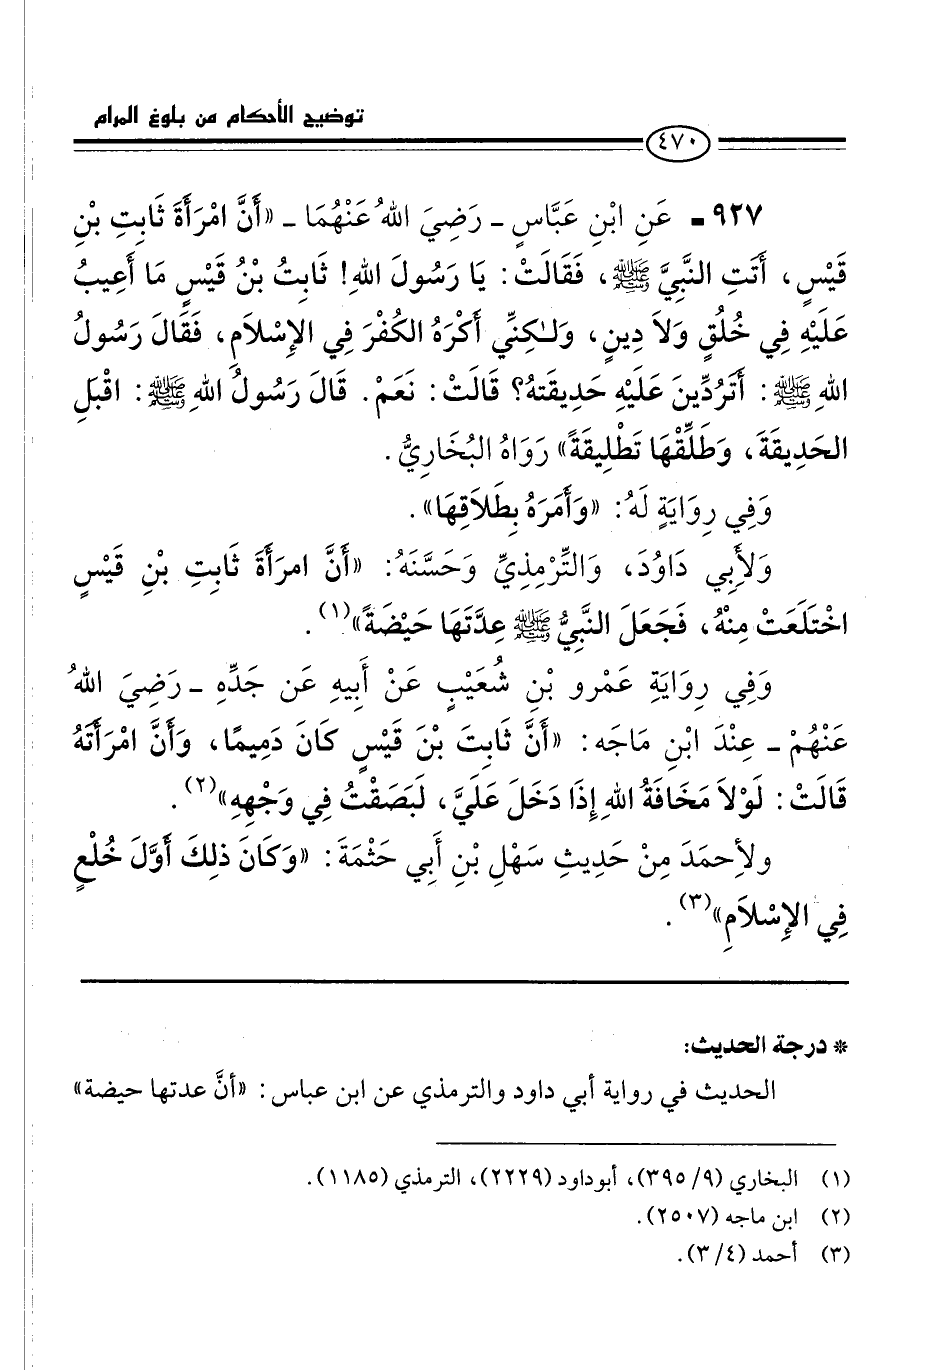 توضيح الأحكام من بلوغ المرام
٤٧٠
٩٢٧ - عَنِ ابْنِ عَبَّاسٍ - رَضِيَ اللهُ عَنْهُمَا - «أَنَّ امْرَأَةَ ثَابِتِ بْنِ
قَيْسٍ، أَتَتِ النَّبِيَّ ﷺ، فَقَالَتْ: يَا رَسُولَ اللهِ! ثَابِتُ بْنُ قَيْسٍ مَا أَعِيبُ
عَلَيْهِ فِي خُلُقٍ وَلاَ دِينٍ، وَلَـٰكِنِّي أَكْرَهُ الكُفْرَ فِي الإِسْلَامِ، فَقَالَ رَسُولُ
اللهِ ﷺ: أَتَرُدِّينَ عَلَيْهِ حَدِيقَتَهُ؟ قَالَتْ: نَعَمْ. قَالَ رَسُولُ اللهِ ﷺ: اقْبَلِ
الحَدِيقَةَ، وَطَلِّقْهَا تَطْلِيقَةً» رَوَاهُ البُخَارِيُّ.
وَفِي رِوَايَةٍ لَهُ: «وَأَمَرَهُ بِطَلاَقِهَا».
وَلأَبِي دَاوُدَ، وَالتِّرْمِذِيِّ وَحَسَّنَهُ: «أَنَّ امرَأَةَ ثَابِتِ بْنِ قَيْسٍ
اخْتَلَعَتْ مِنْهُ، فَجَعَلَ النَّبِيُّ ﷺ عِدَّتَهَا حَيْضَةً»(١).
وَفِي رِوَايَةِ عَمْرِو بْنِ شُعَيْبٍ عَنْ أَبِيهِ عَن جَدِّهِ - رَضِيَ اللهُ
عَنْهُمْ - عِنْدَ ابْنِ مَاجَه: «أَنَّ ثَابِتَ بْنَ قَيْسٍ كَانَ دَمِيمًا، وَأَنَّ امْرَأَتَهُ
قَالَتْ: لَوْلاَ مَخَافَةُ اللهِ إِذَا دَخَلَ عَلَيَّ، لَبَصَقْتُ فِي وَجْهِهِ»(٢).
ولأحمَدَ مِنْ حَدِيثِ سَهْلِ بْنِ أَبِي حَثْمَةَ: «وَكَانَ ذلِكَ أَوَّلَ خُلْعٍ
فِي الإِسْلاَمِ»(٣).
* درجة الحديث:
الحديث في رواية أبي داود والترمذي عن ابن عباس: «أنَّ عدتها حيضة»
(١) البخاري (٩/ ٣٩٥)، أبوداود (٢٢٢٩)، الترمذي (١١٨٥).
(٢) ابن ماجه (٢٥٠٧).
(٣) أحمد (٤/ ٣).